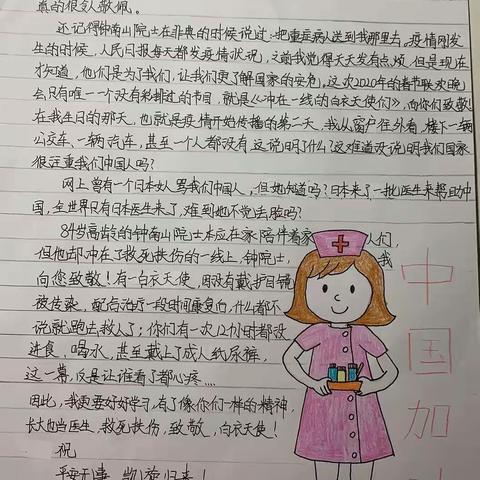 真的很令人敬佩。
还记得钟南山院士在非典的时候说过:把重症病人送到我那里去。疫情刚发
生的时候,人民日报每天都发疫情状况,之前我觉得天天发有点烦,但是现在
才知道,他们是为了我们,让我们更了解国家的安危,这次2020年的春节联欢晚
会只有唯一一个没有彩排过的节目,就是《冲在一线的白衣天使们》,向你们致敬!
在我生日的那天,也就是疫情开始传播的第二天,我从窗户往外看,楼下一辆
公交车、一辆汽车,甚至一个人都没有,这说明了什么?这难道没说明我们国家
很注重我们中国人吗?
网上曾有一个日本女人骂我们中国人,但她知道吗?日本来了一批医生来帮助中
国,全世界只有日本医生来了,难到他不觉丢脸吗?
84岁高龄的钟南山院士本应在家陪伴着家人们,
但他却冲在了救死扶伤的一线上,钟院士,我
向您致敬!有一白衣天使,因没有戴护目镜
被传染,配合治疗一段时间康复后,什么都不
说就跑去救人了;你们有一次12小时都没
进食、喝水,甚至戴上了成人纸尿裤,
这一幕,仅是让谁看了都心疼....
因此,我更要好好学习,有了像你们一样的精神,
长大也当医生,救死扶伤,致敬,白衣天使!
祝
平安无事,凯旋归来!
中
国
加